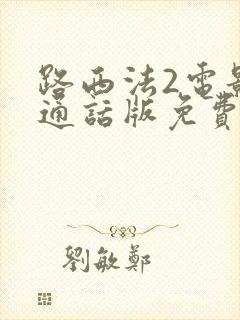 路西法2電影
通話版免費
劉敏鄭